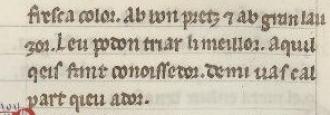 fresca color. Ab bon pretz ⁊ ab gran lau
zor. Leu podon triar li meillor. Aquil
qeis fant conoissedor. demi uas cal
part qieu ador.